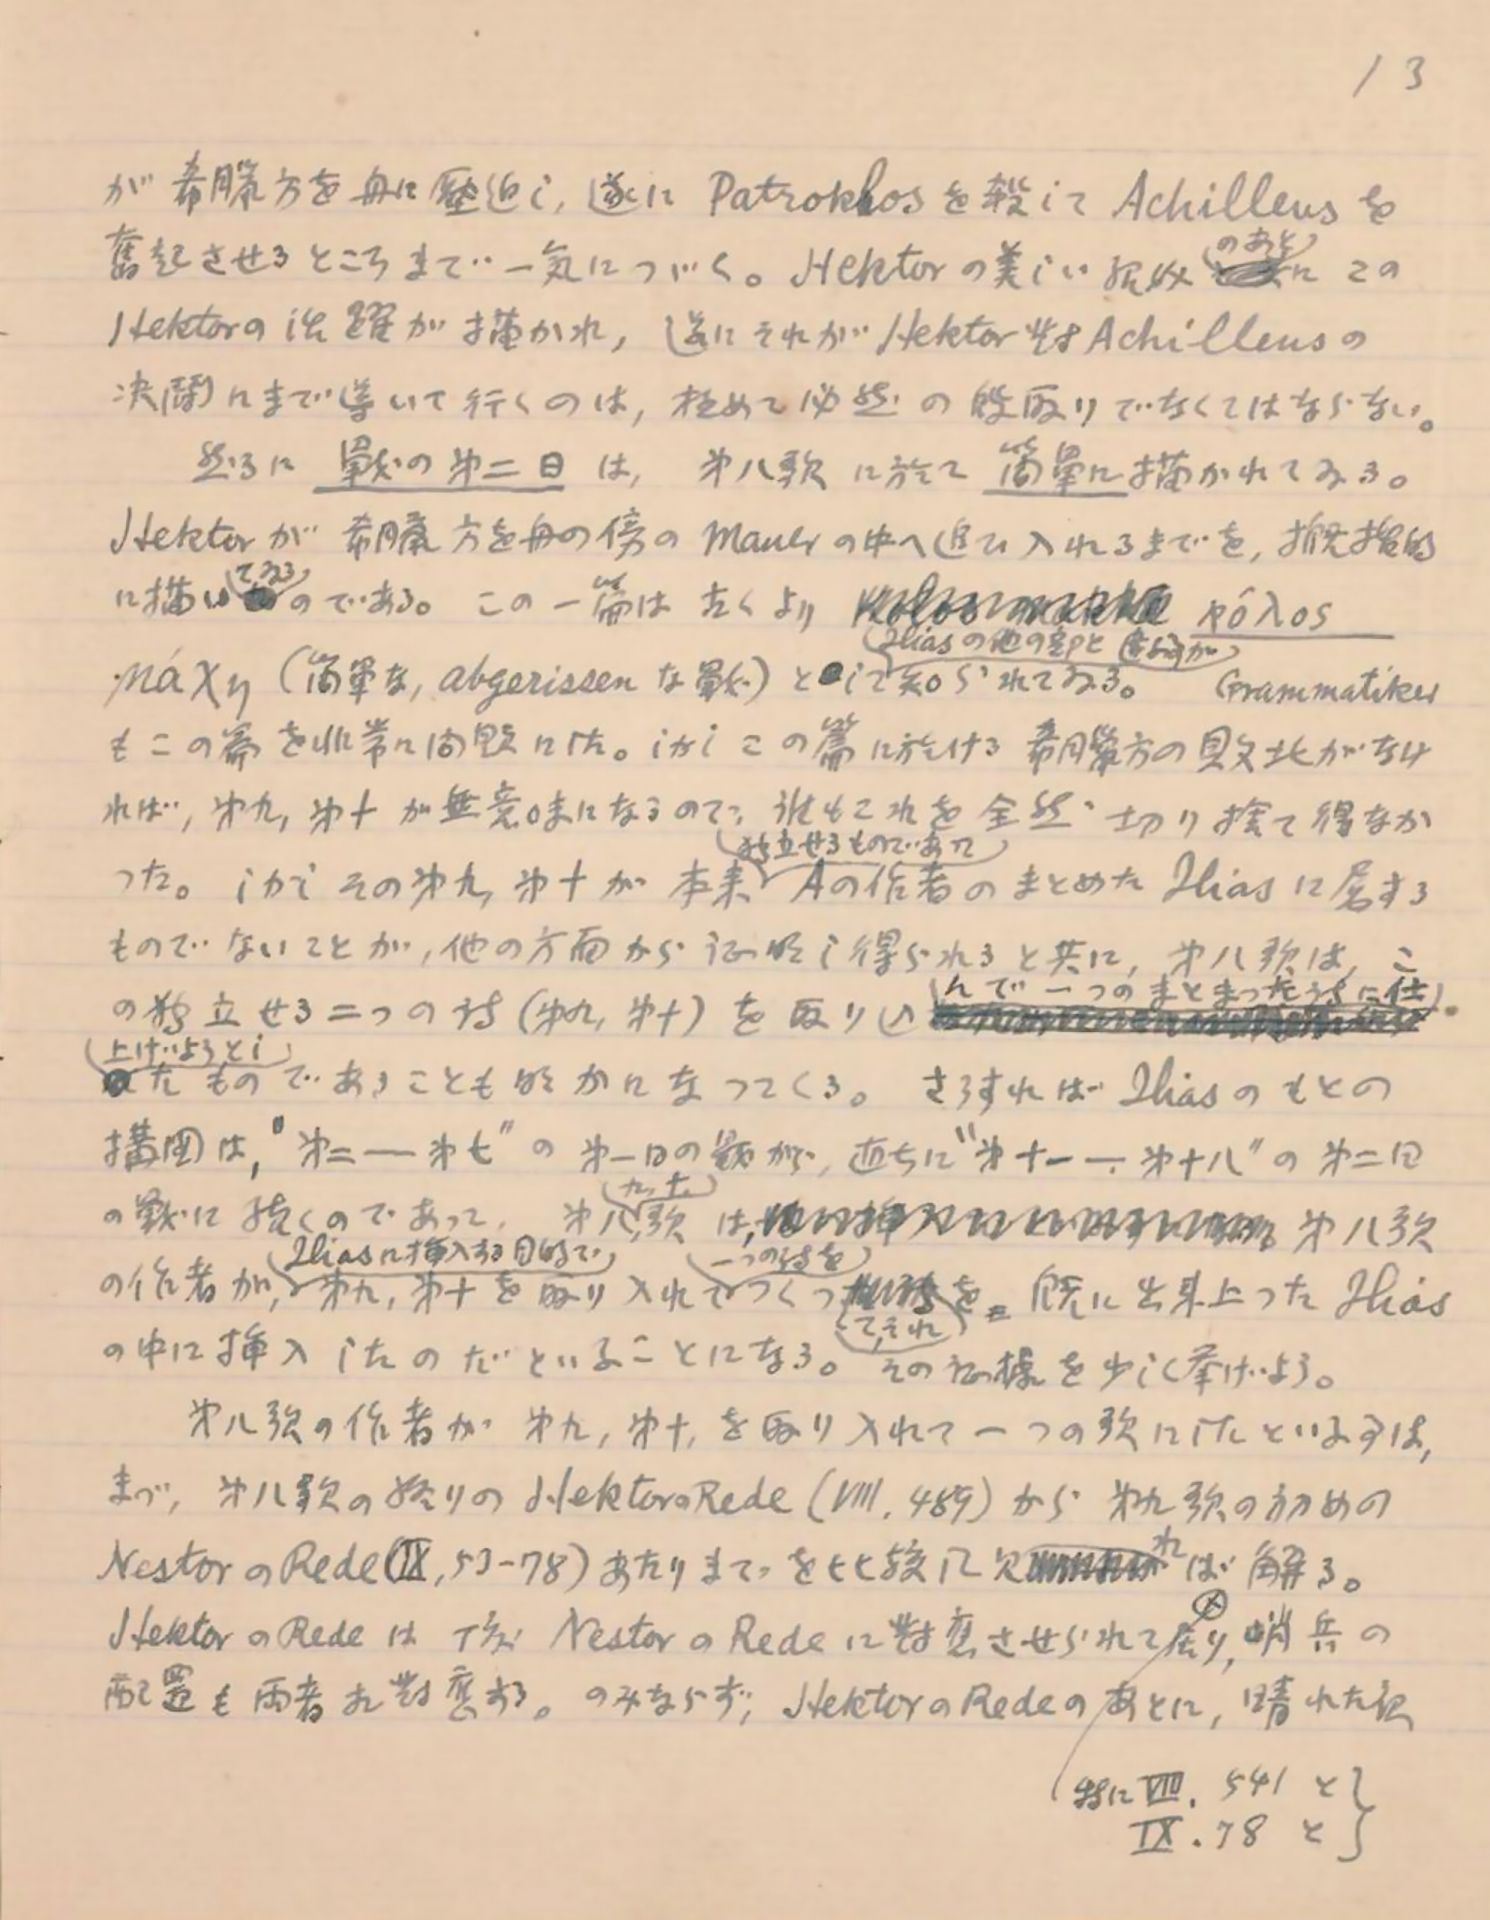 13
が希臘方を舟に壓迫し, 遂に Patroklos を殺して Achilleus を
奮起させるところまで一気につづく。Hektor の美しい叙述のあとに この
Hektor の活躍が描かれ, 遂にそれが Hektor 対 Achilleus の
決鬪にまで導いて行くのは, 極めて必然の段取りでなくてはならない。
然るに 戰の第二日 は, 第八歌に於て 簡單に描かれてゐる。
Hektor が 希臘方を舟の傍の Mauer の中へ追ひ入れるまでを, 概括的
に描いてゐるのである。この一篇は古くより κόλος
μάχη (簡單な, abgerissen な戰) として知られてゐる。Grammatiker
Ilias の他の部と
もこの篇を非常に問題にした。しかしこの篇に於ける 希臘方の敗北がなけ
れば, 第九, 第十が無意味になるので, 誰もこれを全然切り捨て得なか
った。しかしその第九, 第十が 本来 独立せるものであって Aの作者のまとめた Ilias に属する
ものでないことが, 他の方面から證明し得られると共に, 第八歌は, こ
の独立せる二つの詩 (第九, 第十) を取り込んで一つのまとまった詩に仕
上げようとしたものであることも明かになってくる。さうすれば Ilias のもとの
構図は, "第二 — 第七" の第一日の戰が, 直ちに "第十一 — 第十八" の第二日
の戰に続くのであって, 第八, 九, 十, 歌は, 第八歌
の作者が, Ilias に挿入する目的で 第九, 第十を取り入れて 一つの詩を つくって, それを 既に出来上った Ilias
の中に挿入したのだといふことになる。その證據を少しく挙げよう。
第八歌の作者が 第九, 第十, を取り入れて一つの歌にしたといふ事は,
まづ, 第八歌の終りの Hektor の Rede (VIII. 489) から 第九歌の初めの
Nestor の Rede (IX, 53-78) あたりまでを比較して見れば解る。
Hektor の Rede は 丁度 Nestor の Rede に対應させられて居り, 哨兵の
配置も両者相対應する。のみならず, Hektor の Rede のあとに, 晴れた夜
特に VIII. 541 と
IX. 78 と